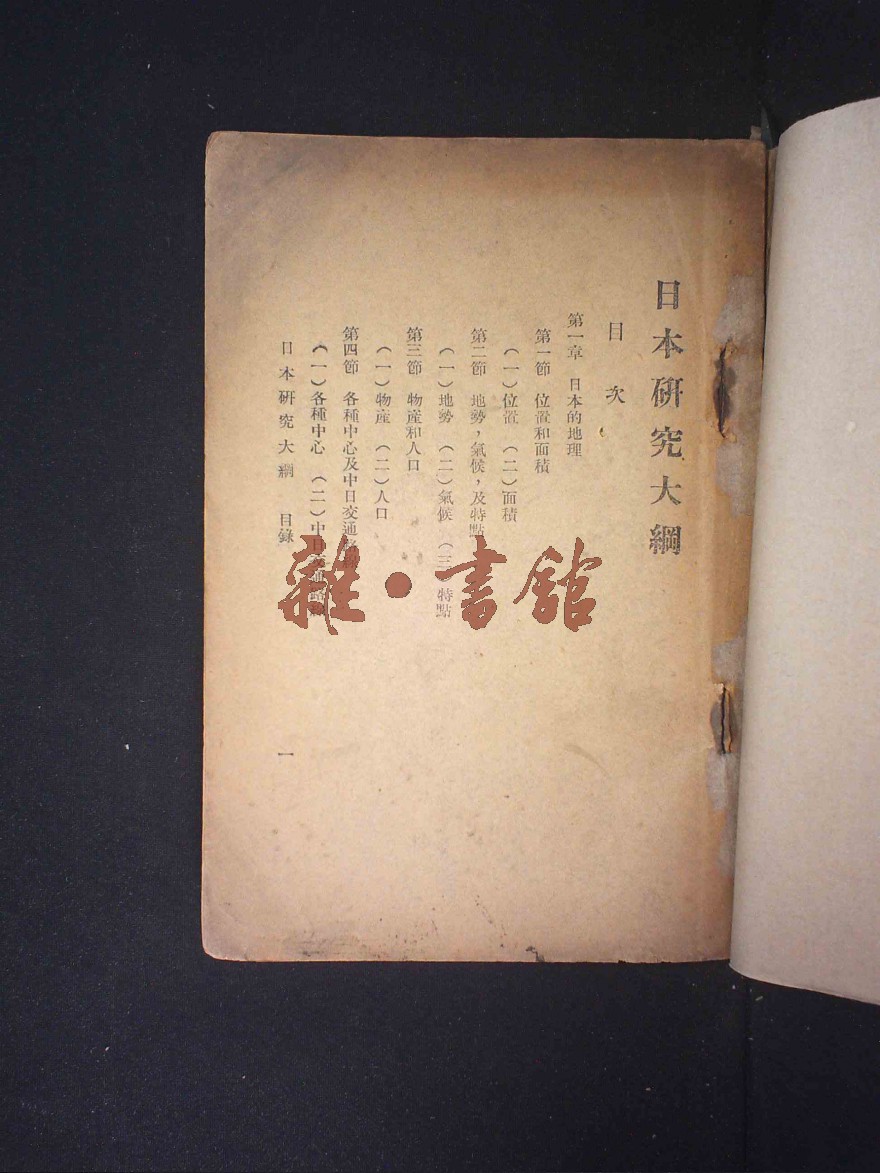 日本研究大綱
目次
第一章 日本的地理
第一節 位置和面積
(一)位置 (二)面積
第二節 地勢，氣候，及特點
(一)地勢 (二)氣候 (三)特點
第三節 物產和人口
(一)物產 (二)人口
第四節 各種中心及中日交通
(一)各種中心 (二)中日交通路線
日本研究大綱 目錄
一
雜·書館